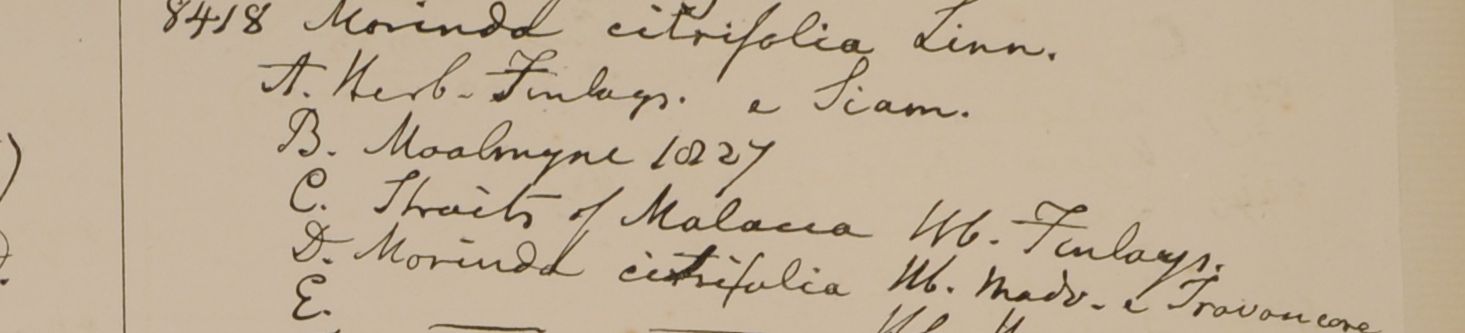 8418 Morinda citrifolia Linn.
A. Herb. Finlays. e Siam.
B. Moalmyne 1827
C. Straits of Malacca Hb. Finlays.
D. Morinda citrifolia Hb. Madr. e Travancore
E.